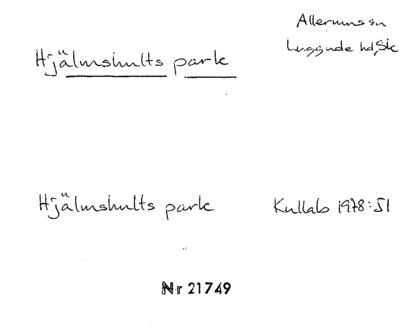 Allerums sn
Luggude hd, Sk
Hjälmshults park
Hjälmshults park
Kullab 1978:51
Nr 21749